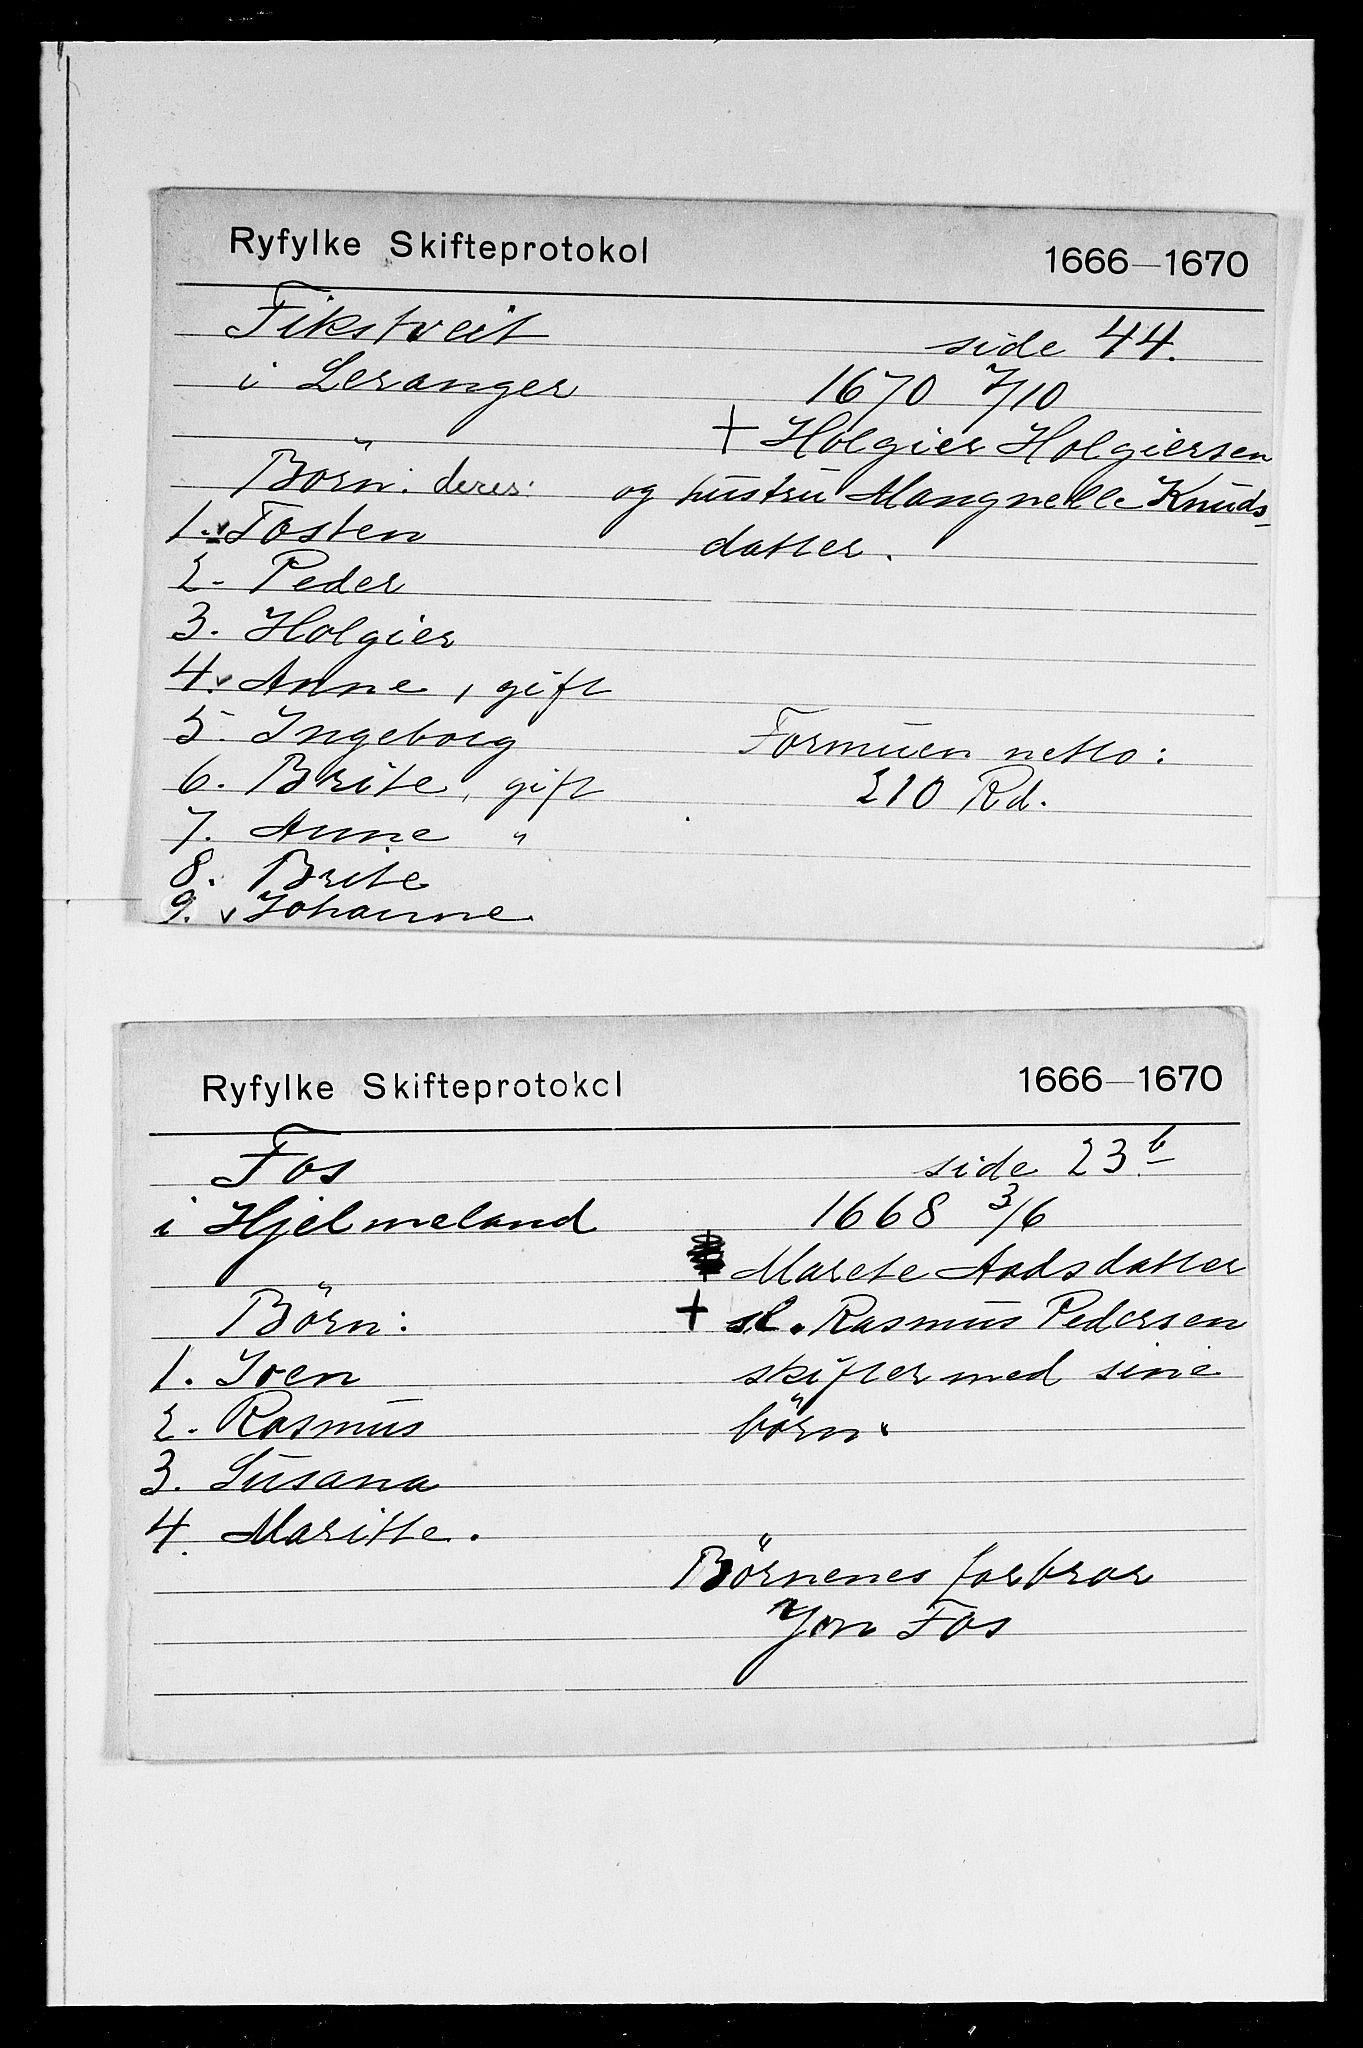 Ryfylke Skifteprotokol 1666—1670
Fikstveit side 44.
i Leranger 1670 7/10
+ Holgier Holgiersen
Börn: deres: og hustru Mangnelle Knuds-
1. v Tosten datter.
2. Peder
3. Holgier
4. v Anne, gift
5. Ingeborg Formuen netto:
6. Brite, gift 210 Rd.
7. Anne "
8. Brite
9. v Johanne
Ryfylke Skifteprotokol 1666—1670
Fos side 23 b
i Hjelmeland 1668 3/6
Marete Aadsdatter
Börn: + sl. Rasmus Pedersen
1. Iven skifter med sine
2. Rasmus börn.
3. Susana
4. Maritte.
Börnenes farbror
Jon Fos